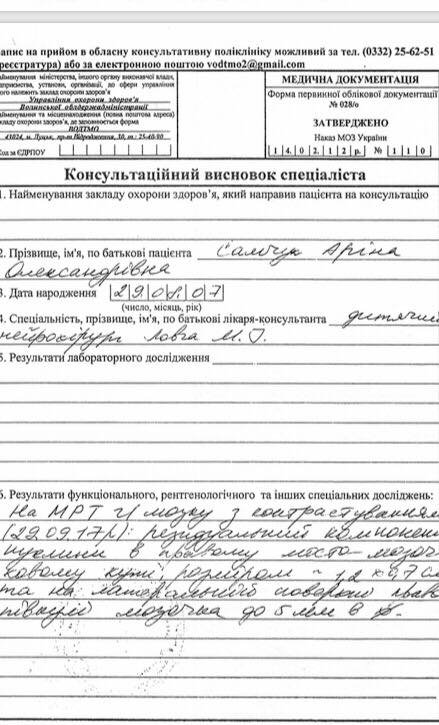 запис на прийом в обласну консультативну поліклініку можливий за тел. (0332) 25-62-51
реєстратура) або за електронною поштою vodtmo2@gmail.com
айменування міністерства, іншого органу виконавчої влади,
ідприємства, установи, організації, до сфери управління
ого належить заклад охорони здоров'я
Управління охорони здоров'я
Волинської облдержадміністрації
айменування та місцезнаходження (повна поштова адреса)
кладу охорони здоров'я, де заповнюється форма
ВОДТМО
43024, м. Луцьк, пр-т Відродження, 30, т.: 25-40-90
Код за ЄДРПОУ
МЕДИЧНА ДОКУМЕНТАЦІЯ
Форма первинної облікової документації
№ 028/о
ЗАТВЕРДЖЕНО
Наказ МОЗ України
1 4. 0 2. 1 2 р. № 1 1 0
Консультаційний висновок спеціаліста
1. Найменування закладу охорони здоров'я, який направив пацієнта на консультацію
2. Прізвище, ім'я, по батькові пацієнта Саляук Аріна
Олександрівна
3. Дата народження 2 9 0 8 0 7
(число, місяць, рік)
4. Спеціальність, прізвище, ім'я, по батькові лікаря-консультанта дитячий
нейрохірург Ловга М.
5. Результати лабораторного дослідження
6. Результати функціонального, рентгенологічного та інших спеціальних досліджень:
На МРТ г/мозку з контрастуванням
(29.09.17р): резидуальний компонен
пухлини в правому мосто-мозоч
ковому куті розміром ~ 1,2 х 0,7 см
та на латеральній поверхні прав
півкулі мозочка до 5 мм в